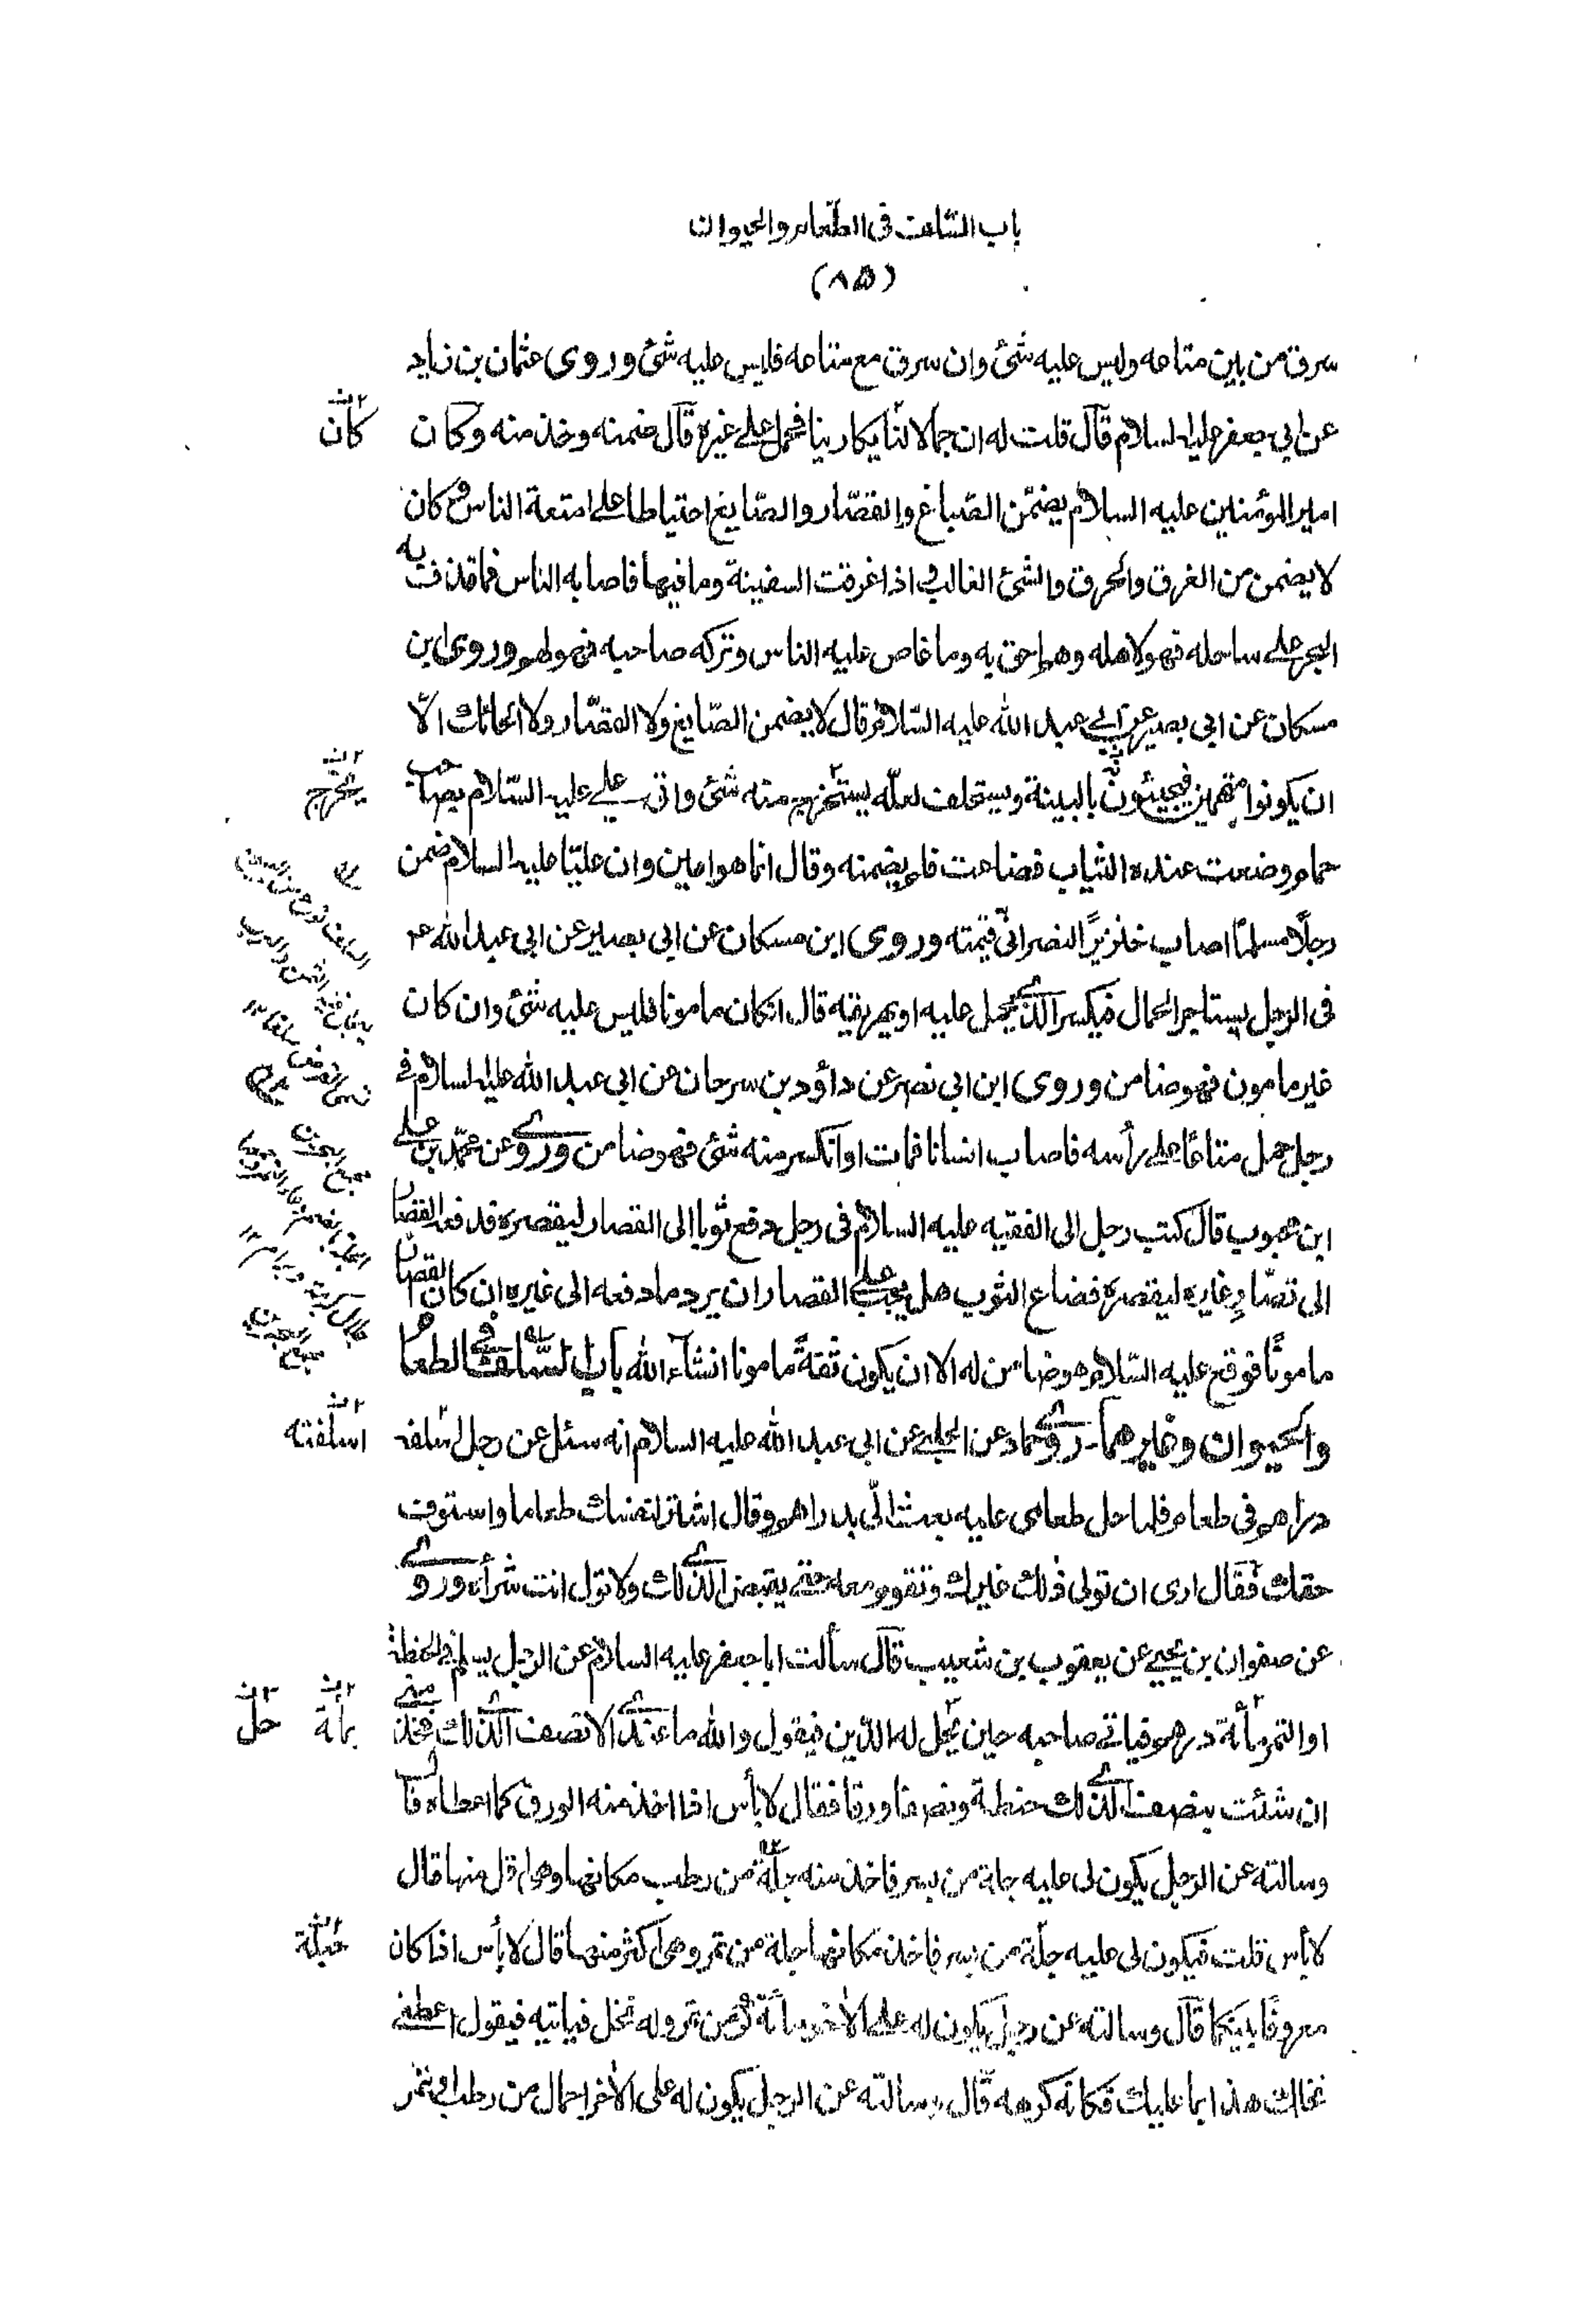 باب السّلف فى الطّعام والحيوان
(٨٥)
سرق من بين متاعه وليس عليه شئ وان سرق مع متاعه فليس عليه شئ وروى عثمان بن زياد
عن ابى جعفر عليه السلام قال قلت له ان جمالا لنا يكارينا فحمل على غيره قال ضمنه وخذ منه وكان
كان
امير المؤمنين عليه السلام يضمّن الصّباغ والقصّار والصّايغ احتياطا على امتعة الناس وكان
لا يضمن من الغرق والحرق والشئ الغالب اذا غرقت السفينة وما فيها فاصابه الناس فما قذف به
البحر على ساحله فهو لاهله وهم احق به وما غاص عليه الناس وتركه صاحبه فهو لهم وروى ابن
مسكان عن ابى بصير عن ابى عبد الله عليه السّلام قال لا يضمن الصّايغ ولا القصّار ولا الحائك الّا
ان يكونوا متهمين فيجيئون بالبينة ويستحلف لعلّه يستخرج منه شئ واتى على عليه السّلام بصاحب
يخرج
حمام وضعت عنده الثياب فضاعت فلم يضمنه وقال انما هو امين وان عليّا عليه السلام ضمن
رجلًا مسلمًا اصاب خنزيرًا لنصرانى قيمته وروى ابن مسكان عن ابى بصير عن ابى عبد الله ع
فى الرجل يستاجر الحمال فيكسر الذى يحمل عليه او يهريقه قال انكان مامونا فليس عليه شئ وان كان
غير مامون فهو ضامن وروى ابن ابى نصر عن داؤد بن سرحان عن ابى عبد الله عليه السلام فى
رجل حمل متاعًا على رأسه فاصاب انسانا فمات او انكسر منه شئ فهو ضامن وروى عن محمّد بن على
ابن محبوب قال كتب رجل الى الفقيه عليه السلام فى رجل دفع ثوبا الى القصار ليقصره فدفعه القصار
الى قصّار غيره ليقصره فضاع الثوب هل يجب على القصار ان يرد ما دفعه الى غيره ان كان القصار
مامونًا فوقع عليه السّلام هو ضامن له الا ان يكون ثقةً مامونا انشآء الله باب السّلف فى الطعام
والحيوان وغيرهما روى حماد عن الحلبى عن ابى عبد الله عليه السلام انه سئل عن رجل اسلفه
اسلفته
دراهم فى طعام فلما حل طعامى عليه بعث الّى بدراهم وقال اشتر لنفسك طعاما واستوف
حقك فقال ارى ان تولى ذلك غيرك وتقوم معه حتى يقبض الذى لك ولا تولى انت شرآه وروى
عن صفوان بن يحيى عن يعقوب بن شعيب قال سألت ابا جعفر عليه السلام عن الرجل يسلم فى الحنطة
او التمر مأئة درهم فياتى صاحبه حين يحل له الدّين فيقول والله ما عندى الا نصف الذى لك فخذ منى
بمائة حل
ان شئت بنصف الذى لك حنطة وبنصفه ورقا فقال لا بأس اذا اخذ منه الورق كما اعطاه قال
وسالته عن الرجل يكون لى عليه جلة من بسر فاخذ منه جلّة من رطب مكانها وهى اقل منها قال
لا بأس قلت فيكون لى عليه جلّة من بسر فاخذ مكانها جلة من تمر وهى اكثر منها قال لا بأس اذا كان
معروفًا بينكما قال وسالته عن رجل يكون له على الاخر مائة كر من تمر وله نخل فياتيه فيقول اعطنى
نخلك هذا بما عليك فكانه كرهه قال وسالته عن الرجل يكون له على الاخر احمال من رطب او تمر